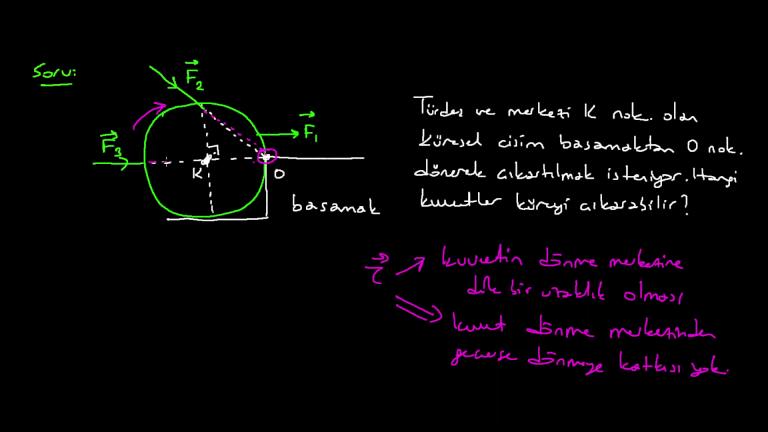 Soru:
F₂
F₁
F₃
K
O
basamak
Türdeş ve merkezi K nok. olan
küresel cisim basamaktan O nok.
dönerek çıkartılmak isteniyor. Hangi
kuvvetler küreyi çıkarabilir?
τ
kuvvetin dönme merkezine
dik bir uzaklık olması
kuvvet dönme merkezinden
geçerse dönmeye katkısı yok.